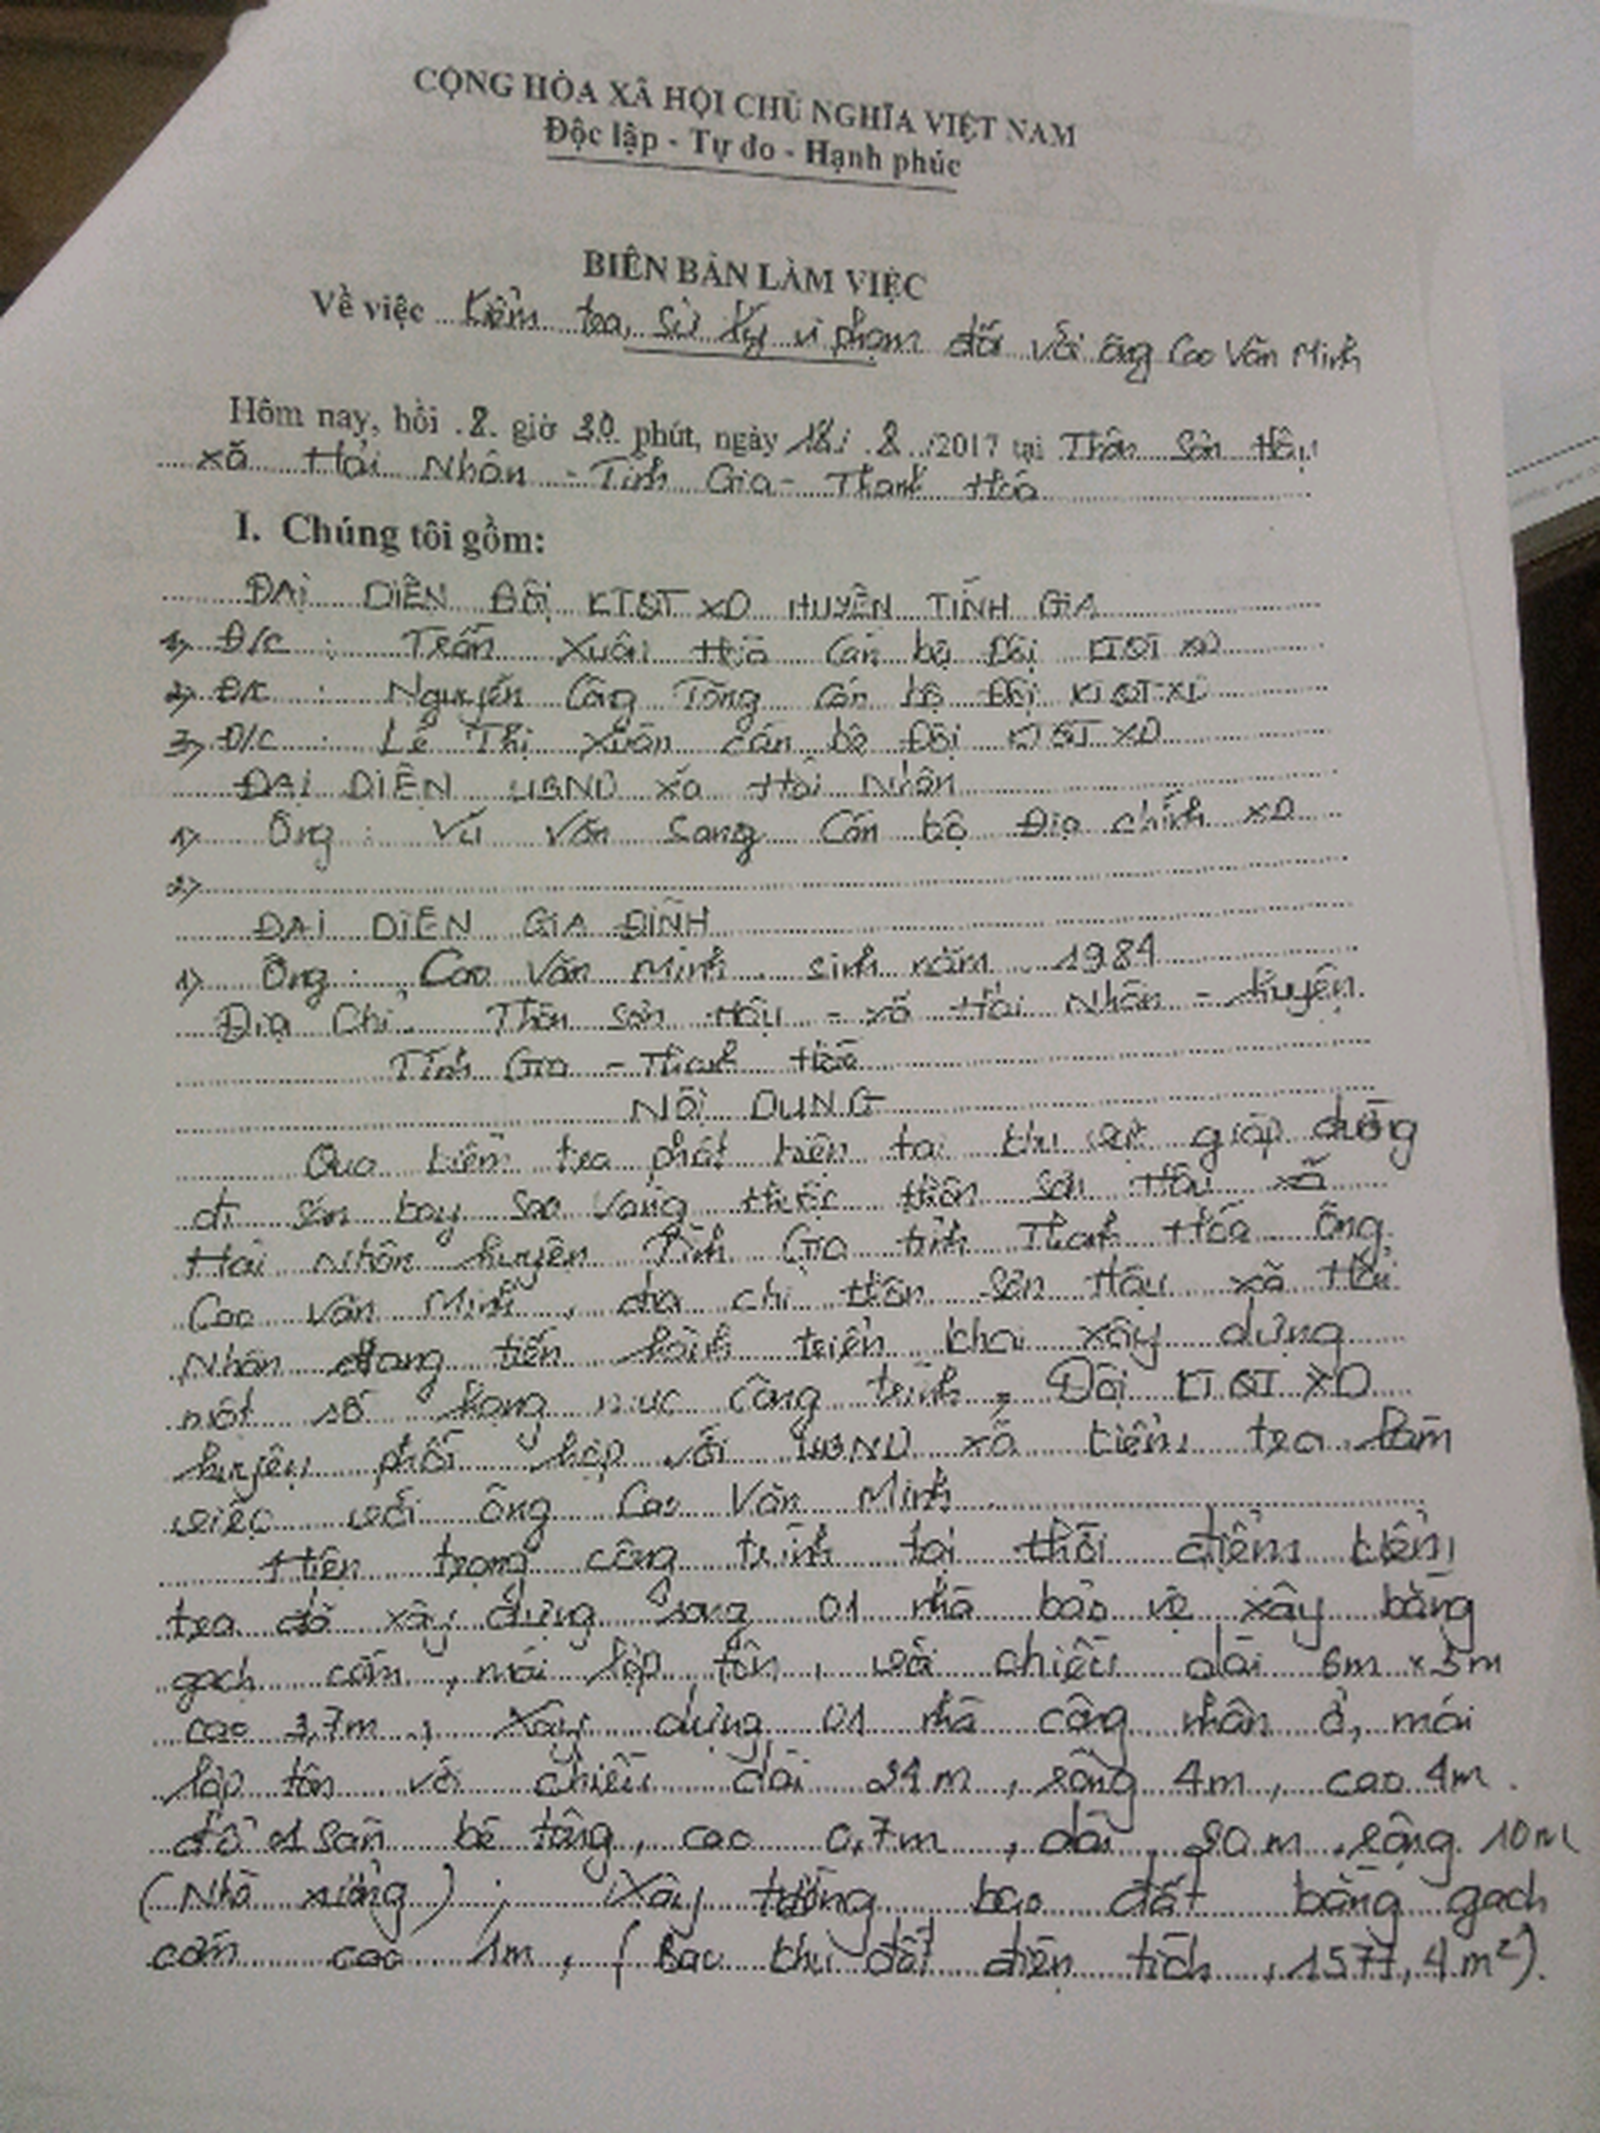 CỘNG HÒA XÃ HỘI CHỦ NGHĨA VIỆT NAM
Độc lập - Tự do - Hạnh phúc
BIÊN BẢN LÀM VIỆC
Về việc Kiểm tra, sử lý vi phạm đối với ông Cao Văn Minh
Hôm nay, hồi 8 giờ 30 phút, ngày 18 / 8 /2017 tại Thôn Sơn Hậu
xã Hải Nhân - Tĩnh Gia - Thanh Hoá
I. Chúng tôi gồm:
ĐẠI DIỆN Đội KTQT XD HUYỆN TĨNH GIA
1) Đ/c : Trần Xuân Hoà Cán bộ Đội KTQT XD
2) Đ/c : Nguyễn Công Tòng Cán bộ Đội KTQT XD
3) Đ/c : Lê Thị Xuân cán bộ Đội KTQT XD
ĐẠI DIỆN UBND xã Hải Nhân
1) Ông : Vũ Văn Sang Cán bộ Địa chính XD
2)
ĐẠI DIỆN GIA ĐÌNH
1) Ông : Cao Văn Minh sinh năm 1984
Địa Chỉ Thôn Sơn Hậu - xã Hải Nhân - huyện
Tĩnh Gia - Thanh Hoá
NỘI DUNG
Qua kiểm tra phát hiện tại khu vực giáp đường
đi sân bay Sao Vàng thuộc thôn Sơn Hậu xã
Hải Nhân huyện Tĩnh Gia tỉnh Thanh Hóa Ông
Cao Văn Minh, địa chỉ thôn Sơn Hậu xã Hải
Nhân đang tiến hành triển khai xây dựng
một số hạng mục công trình, Đội KTQT XD
huyện phối hợp với UBND xã kiểm tra làm
việc với ông Cao Văn Minh
Hiện trạng công trình tại thời điểm kiểm
tra đã xây dựng song 01 nhà bảo vệ xây bằng
gạch cán, mái lợp tôn, với chiều dài 6m x 5m
cao 3,7m ; Xây dựng 01 nhà công nhân ở, mái
lợp tôn với chiều dài 24m, rộng 4m, cao 4m.
đổ 01 sàn bê tông, cao 0,7m, dài 20m, rộng 10m
(Nhà xưởng) ; Xây tường bao đất bằng gạch
cán cao 1m, (Bao khu đất diện tích 1577,4m²).